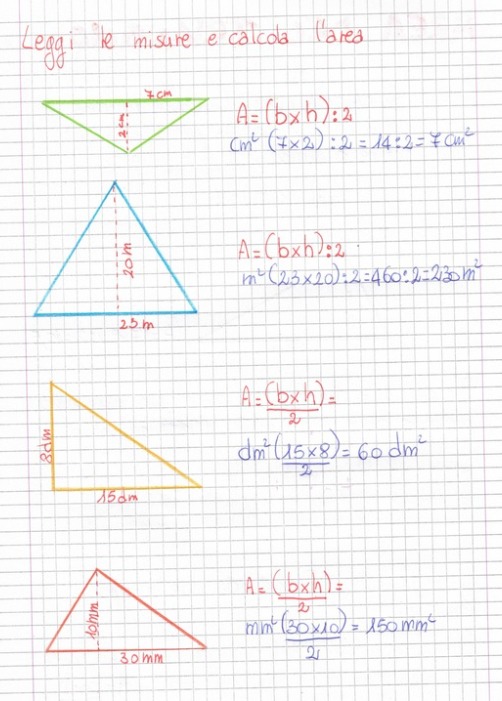 Leggi le misure e calcola l'area
7cm
2cm
A=(bxh):2
cm² (7x2):2=14:2=7cm²
20m
23m
A=(bxh):2
m²(23x20):2=460:2=230m²
8dm
15dm
A=(bxh)=
2
dm²(15x8)=60dm²
2
10mm
30mm
A=(bxh)=
2
mm²(30x10)=150mm²
2